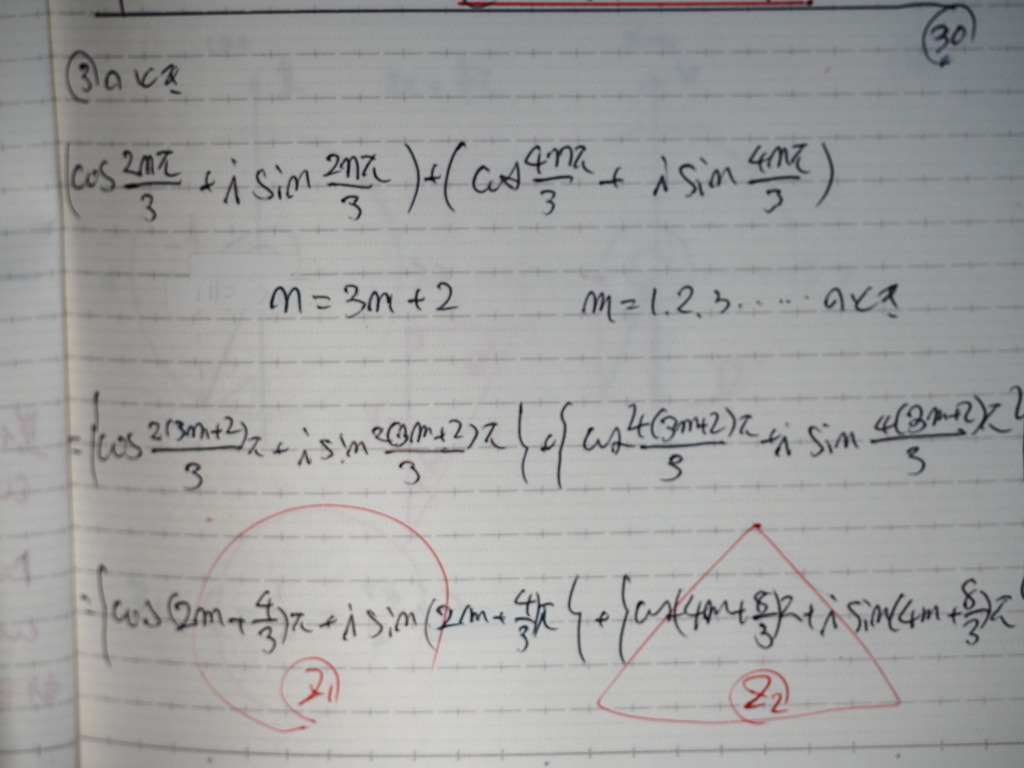 30
③のとき
(cos 2nπ/3 + i sin 2nπ/3) + (cos 4nπ/3 + i sin 4nπ/3)
n = 3m + 2   m = 1. 2. 3. ..... のとき
= {cos 2(3m+2)π/3 + i sin 2(3m+2)π/3} + {cos 4(3m+2)π/3 + i sin 4(3m+2)π/3}
= {cos(2m + 4/3)π + i sin(2m + 4/3)π} + {cos(4m + 8/3)π + i sin(4m + 8/3)π
Z₁ Z₂